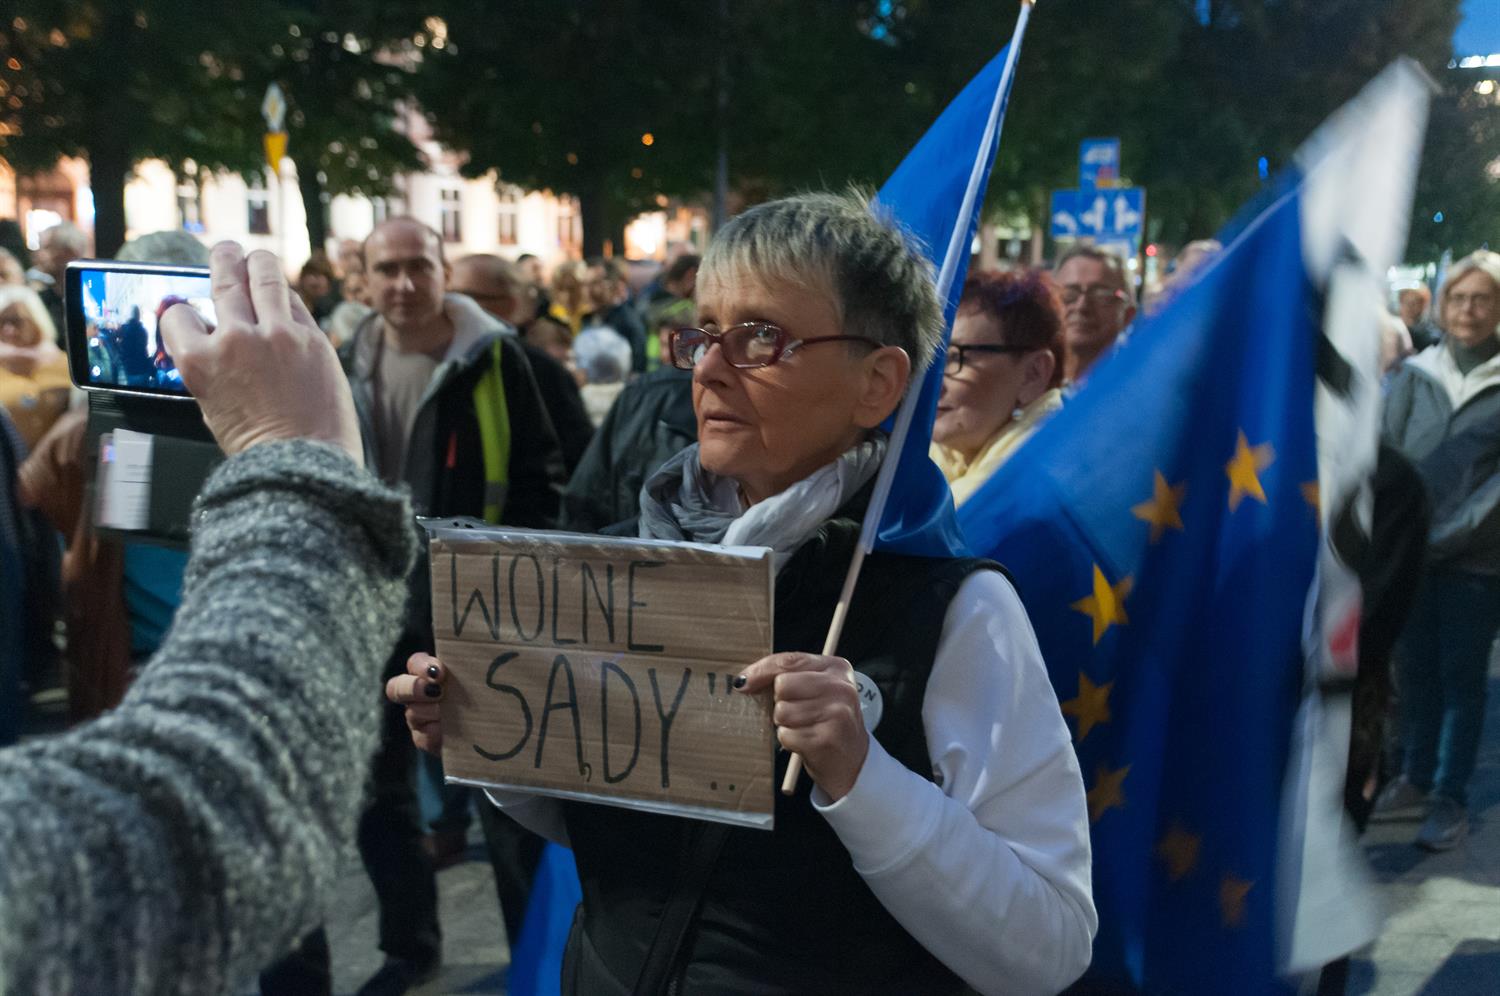 WOLNE
SĄDY!!
ON